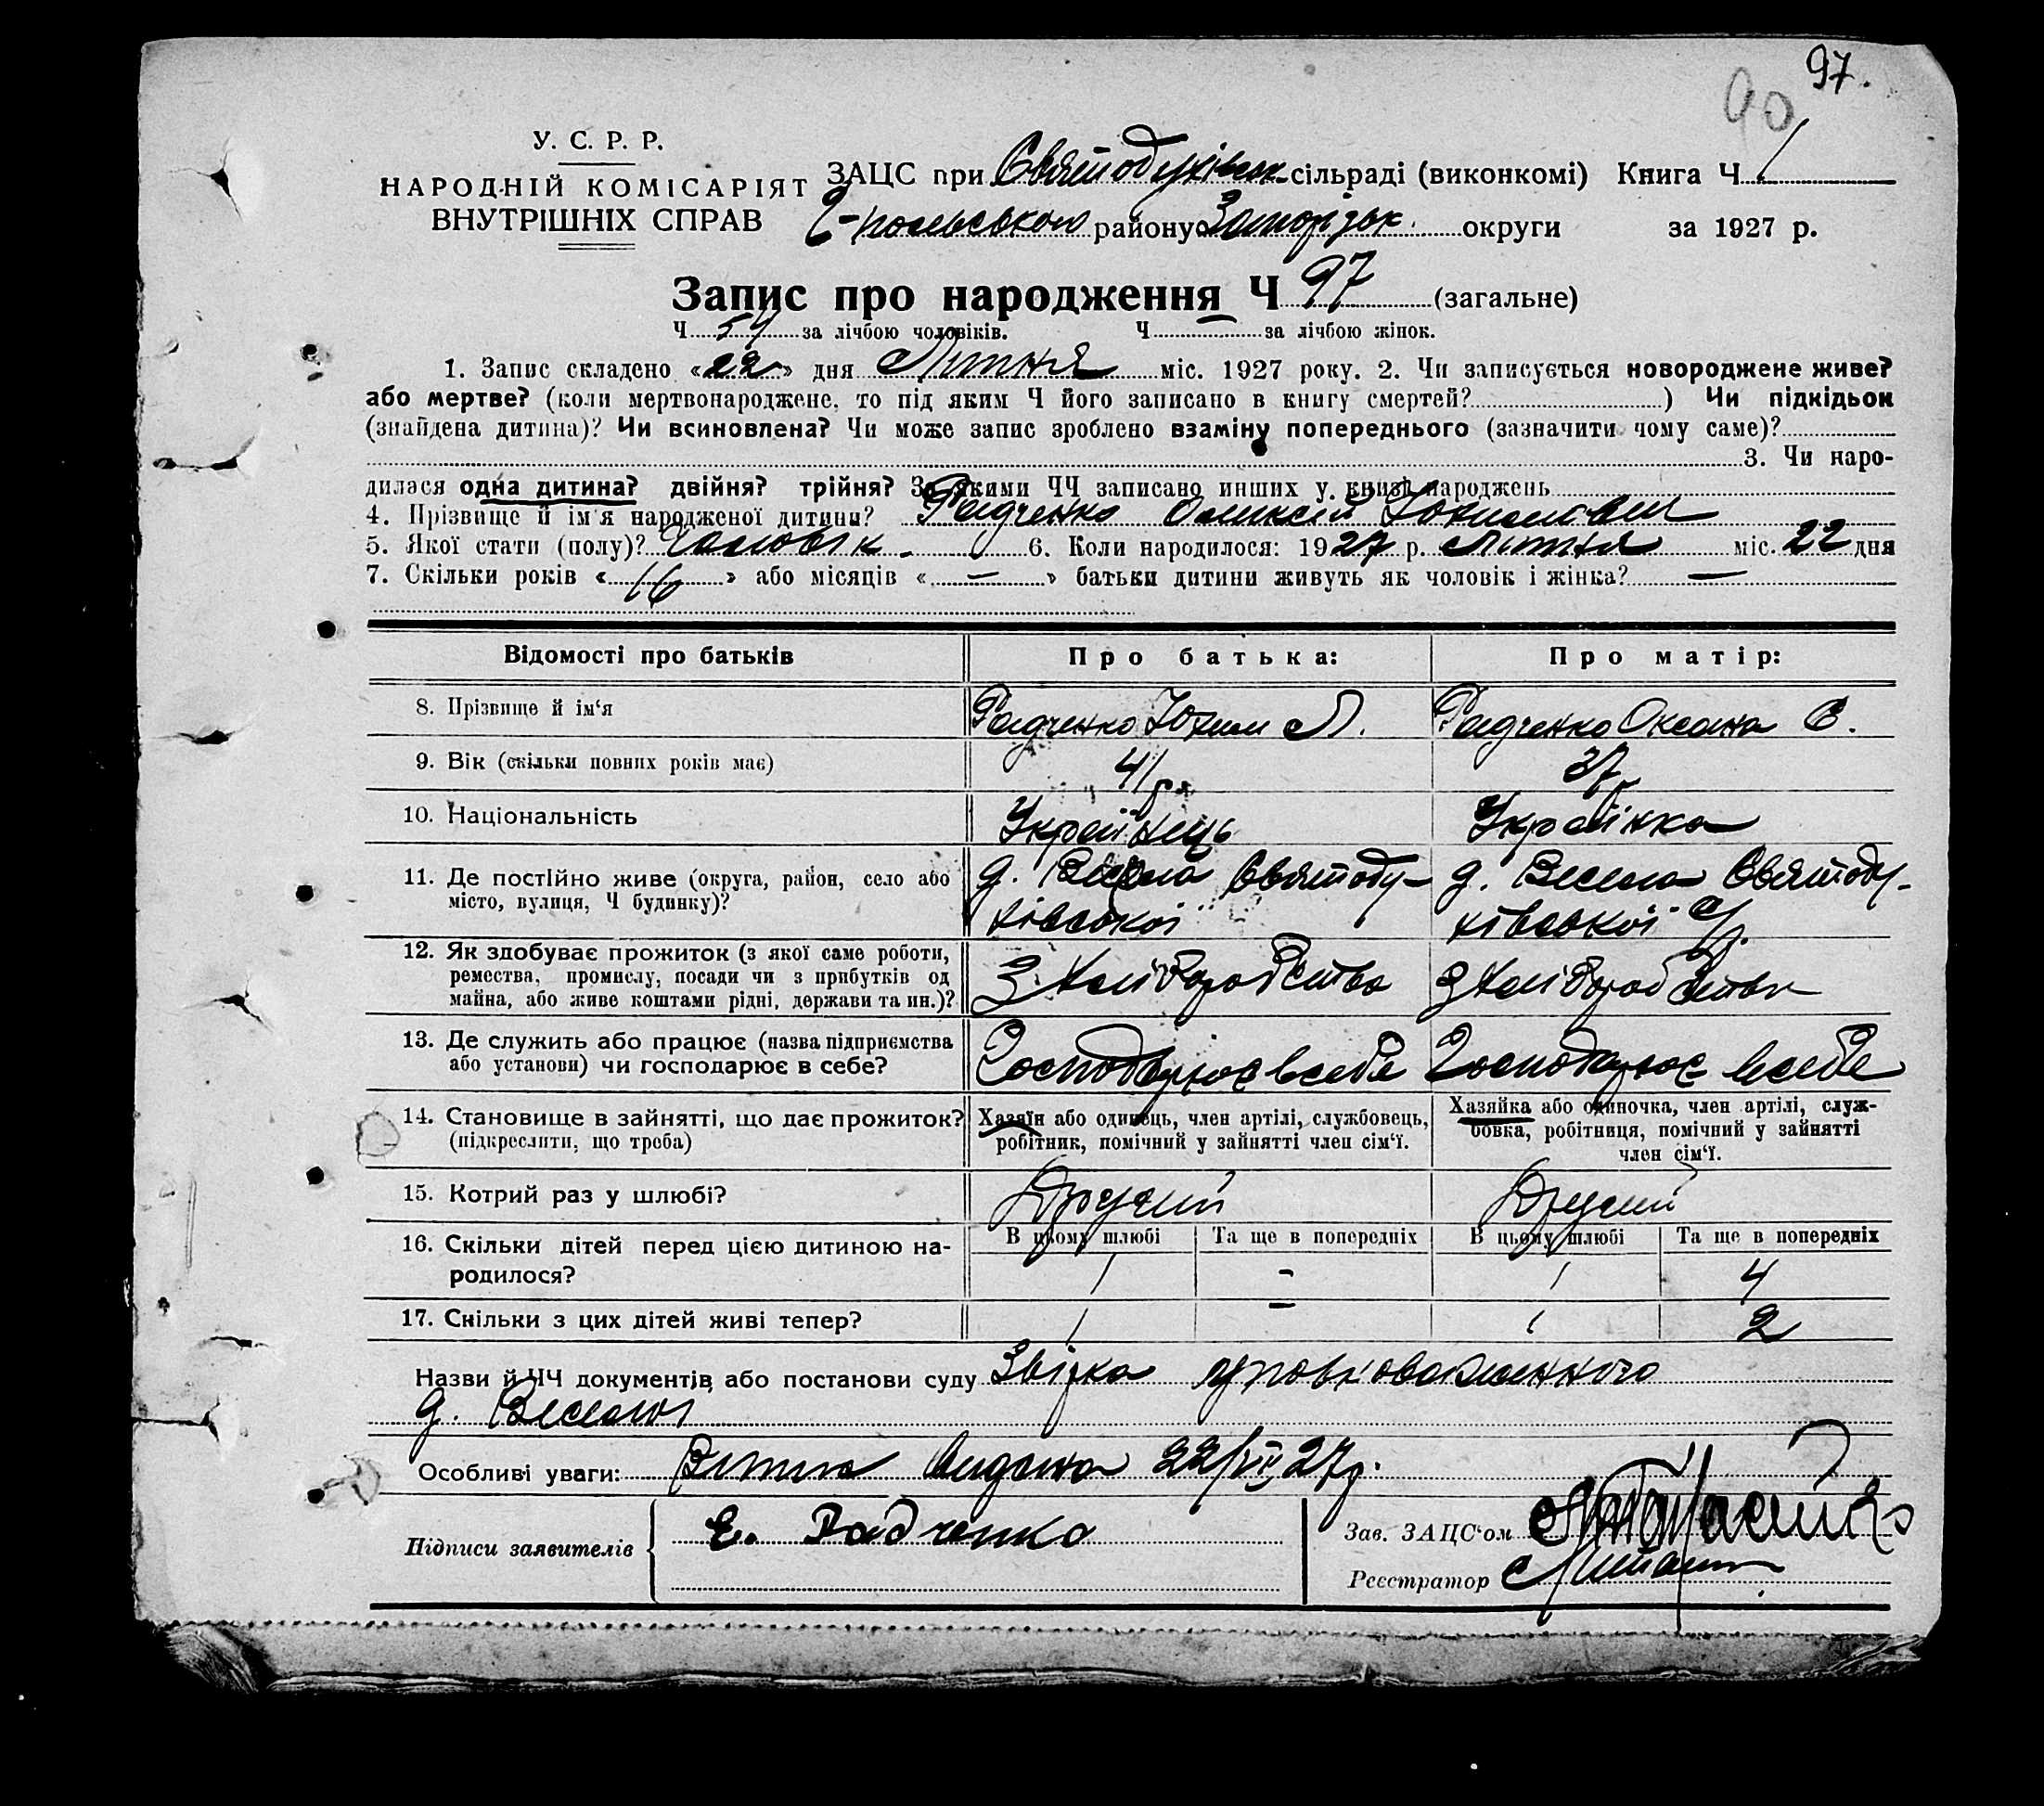 97.
90
У. С. Р. Р.
НАРОДНІЙ КОМІСАРІЯТ
ВНУТРІШНІХ СПРАВ
ЗАЦС при Святодухівськ сільраді (виконкомі) Книга Ч 1
району Запорізьк. округи за 1927 р.
Запис про народження Ч 97 (загальне)
Ч 54 за лічбою чоловіків. Ч — за лічбою жінок.
1. Запис складено «22» дня Липня міс. 1927 року. 2. Чи записується новороджене живе?
або мертве? (коли мертвонароджене, то під яким Ч його записано в книгу смертей? ) Чи підкідьок
(знайдена дитина)? Чи всиновлена? Чи може запис зроблено взаміну попереднього (зазначити чому саме)?
3. Чи наро-
дилася одна дитина? двійня? трійня? За якими ЧЧ записано инших у книзі народжень
4. Прізвище й ім'я народженої дитини? Радченко Олексій Юхимович
5. Якої стати (полу)? Чоловік. 6. Коли народилося: 1927 р. Липня міс. 22 дня
7. Скільки років «16» або місяців «—» батьки дитини живуть як чоловік і жінка? —
Відомості про батьків Про батька: Про матір:
8. Прізвище й ім'я Радченко Юхим Л. Радченко Оксана С.
9. Вік (скільки повних років має) 41 р. 37 р
10. Національність Українець Українка
11. Де постійно живе (округа, район, село або д. Весела Святоду- д. Весела Святоду-
місто, вулиця, Ч будинку)? хівської хівської с/р.
12. Як здобуває прожиток (з якої саме роботи,
ремества, промислу, посади чи з прибутків од З хліборобства З хліборобства
майна, або живе коштами рідні, держави та ин.)?
13. Де служить або працює (назва підприємства
або установи) чи господарює в себе? Господарює всебе Господарює всебе
14. Становище в зайнятті, що дає прожиток? Хазяїн або одинець, член артілі, службовець, Хазяйка або одиночка, член артілі, служ-
(підкреслити, що треба) робітник, помічний у зайнятті член сім'ї. бовка, робітниця, помічний у зайнятті
член сім'ї.
15. Котрий раз у шлюбі? Другий Другий
16. Скільки дітей перед цією дитиною на- В цьому шлюбі Та ще в попередніх В цьому шлюбі Та ще в попередніх
родилося? 1 - 1 4
17. Скільки з цих дітей живі тепер? 1 — 1 2
Назви й ЧЧ документів або постанови суду Звірка уповноваженного
д. Веселої
Особливі уваги: Видана 22/VII 27р.
Підписи заявителів Е. Радченко Зав. ЗАЦС'ом
Реєстратор